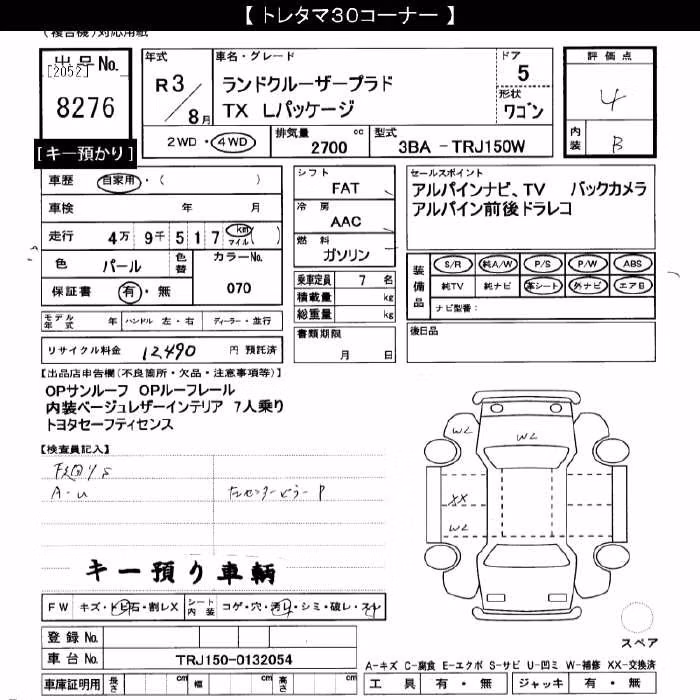 【 トレタマ30コーナー 】
(複合機)対応用紙
出品No.
[2052]
8276
【キー預かり】
年式
R3/8月
車名・グレード
ランドクルーザープラド
TX Lパッケージ
ドア
5
形状
ワゴン
2WD・4WD
排気量 cc
2700
型式
3BA－TRJ150W
評価点
4
内装
B
車歴 自家用・( )
車検 年 月
走行 4万9千517 km マイル ( )
色 パール 色替
カラーNo.
070
保証書 有・無
シフト
FAT
冷房
AAC
燃料
ガソリン
乗車定員 7 名
積載量 kg
総重量 kg
書類期限
月 日
セールスポイント
アルパインナビ、TV バックカメラ
アルパイン前後ドラレコ
装備品
S/R 純A/W P/S P/W ABS
純TV 純ナビ 革シート 外ナビ エアB
ナビ型番：
後日品
モデル年式 年 ハンドル 左・右 ディーラー・並行
リサイクル料金 12,490 円 預託済
【出品店申告欄(不良箇所・欠品・注意事項等)】
OPサンルーフ OPルーフレール
内装ベージュレザーインテリア 7人乗り
トヨタセーフティセンス
【検査員記入】
A-U
キー預り車輌
FW キズ・トビ石・割レX シート内装 コゲ・穴・汚レ・シミ・破レ・スレ
登録No.
車台No. TRJ150-0132054
車庫証明用 長さ cm 幅 cm 高さ cm
W2
W2
XX
W2
スペア
A-キズ C-腐食 E-エクボ S-サビ U-凹ミ W-補修 XX-交換済
工具 有・無 ジャッキ 有・無